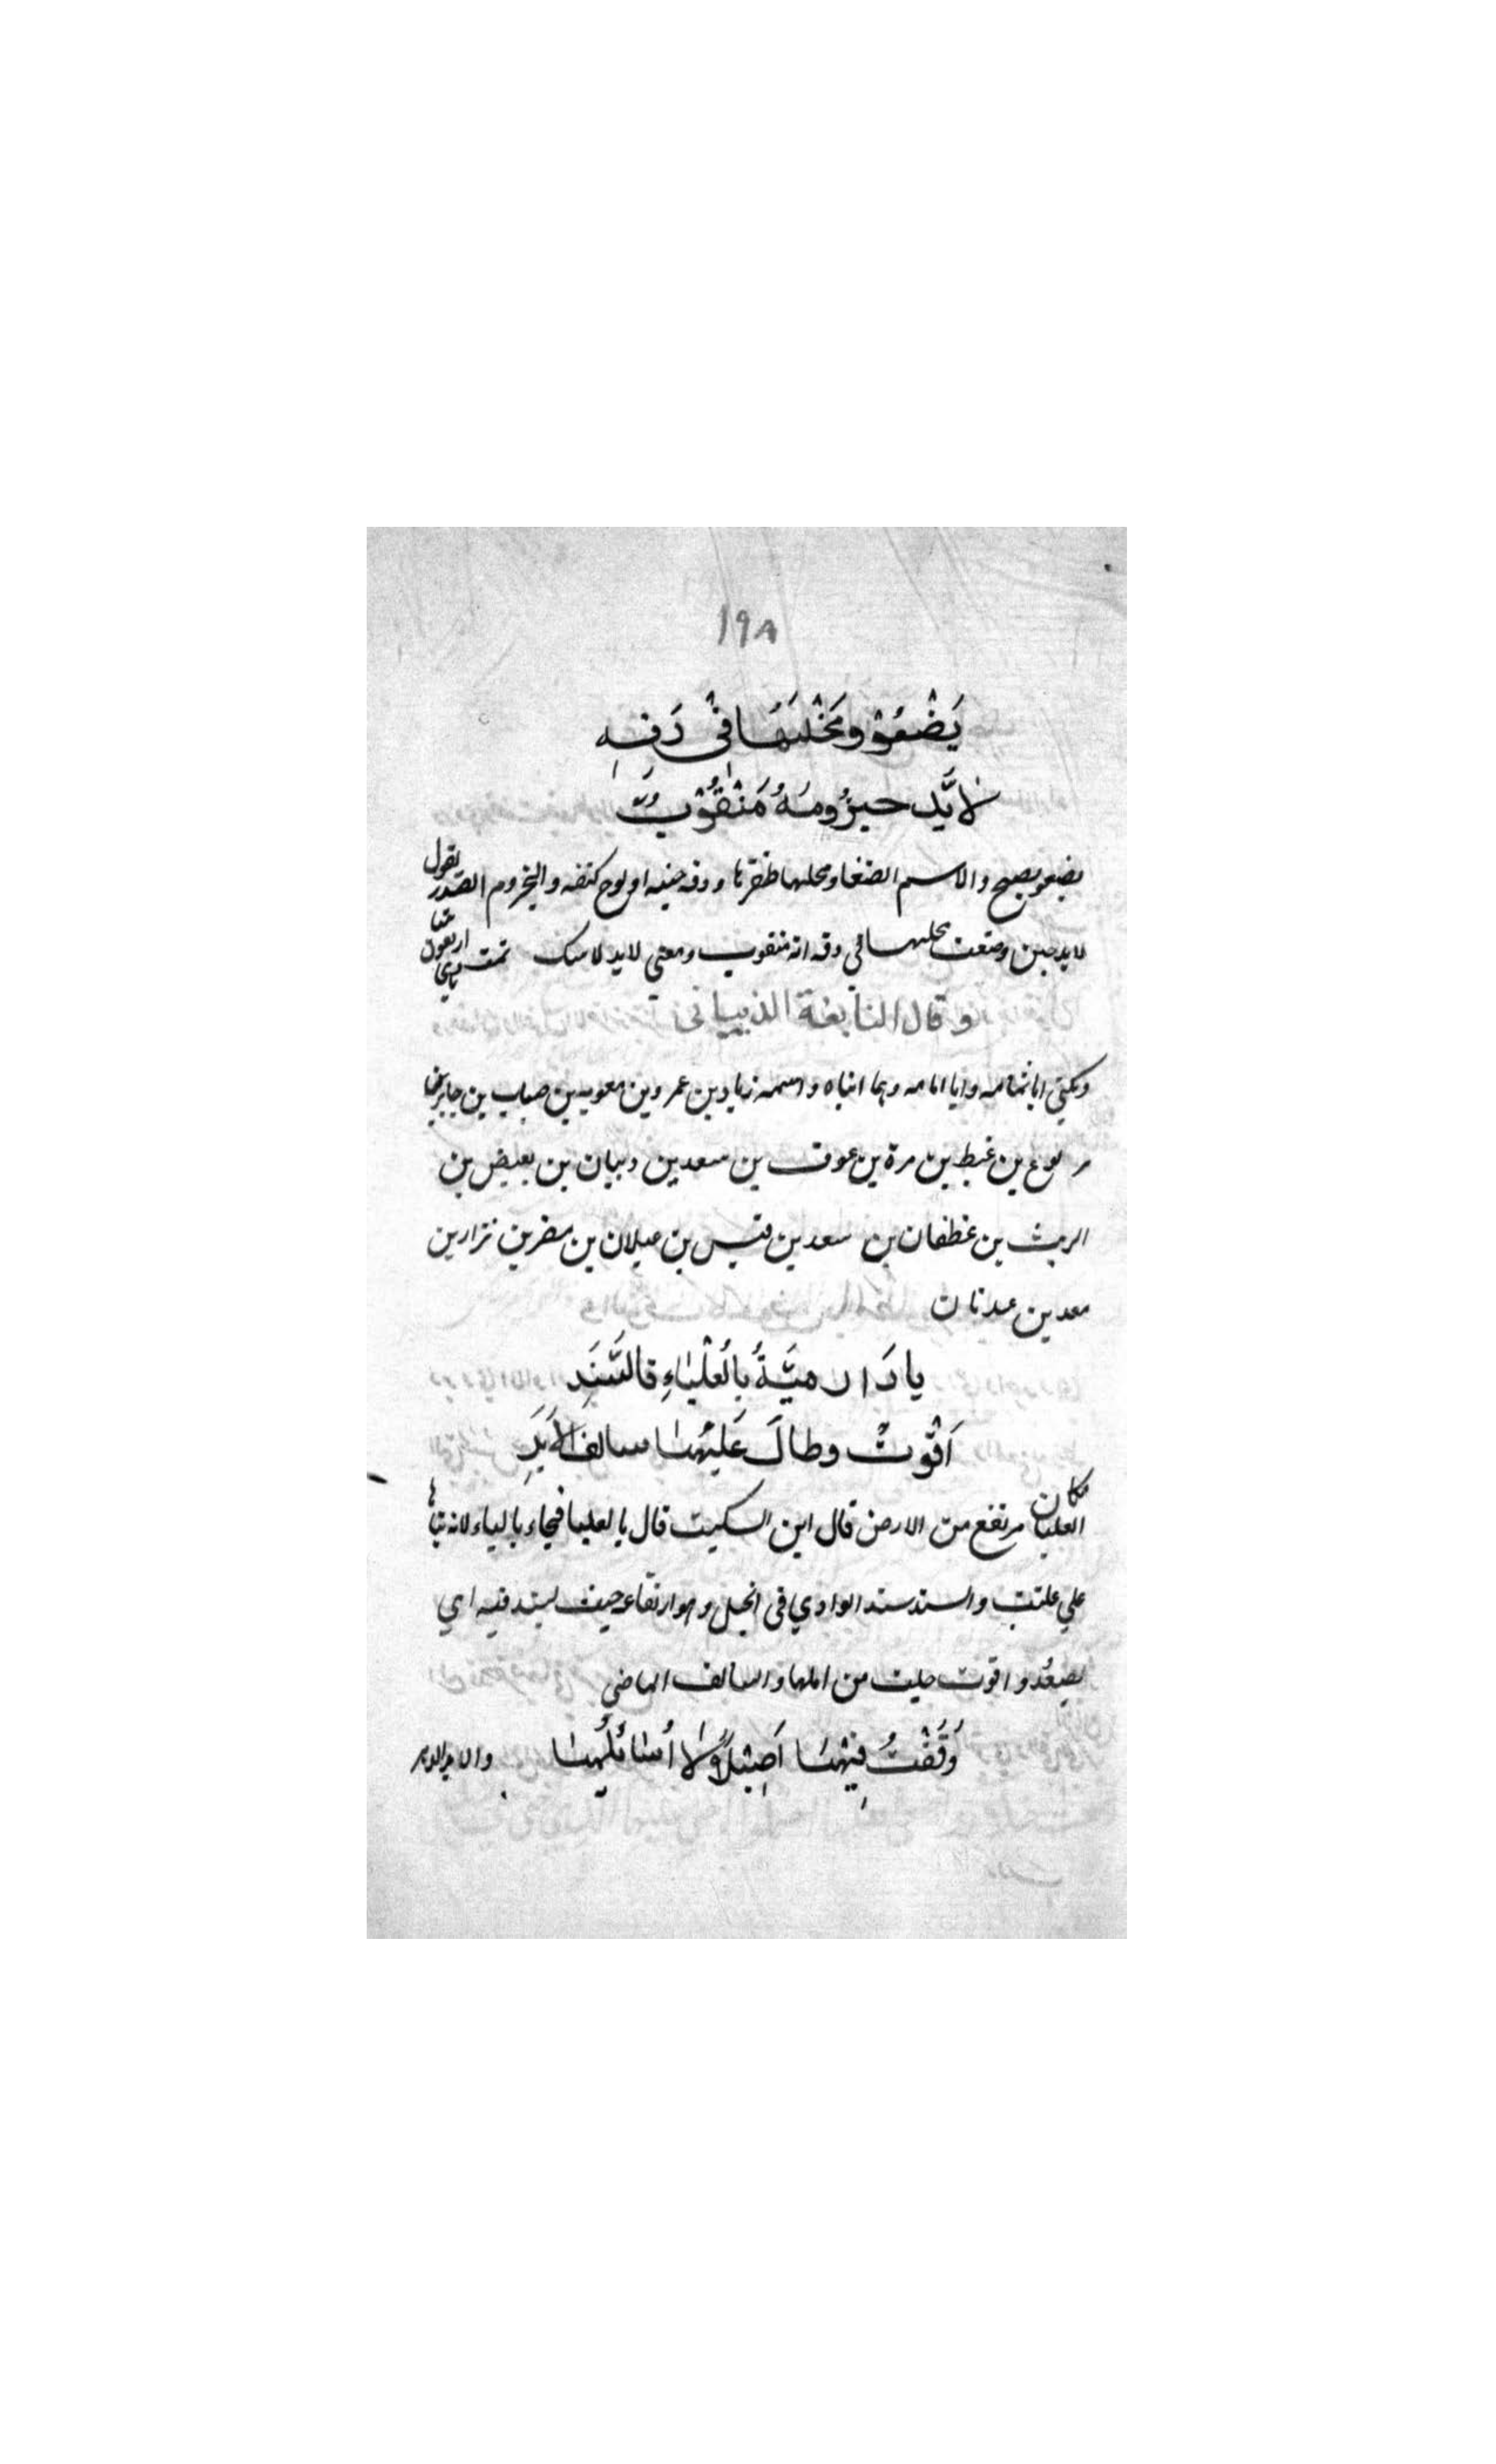 ١٩٨
يَضْغُوْ ومَخْلَبُهَا فِيْ دَفِهِ
لابُدَّ حيزُومُهُ مَنْقُوْبُ
يضغو يصيح والاسم الضغا ومخلبها ظفرها ودفه جنبه او لوح كتفه والحيزوم الصدر يقول
لابد حين وضعت مخلبها في دفه انه منقوب ومعنى لابد لاشك تمت
وقال النابغة الذبياني
ويكنى ابا ثمامه وابا امامه وهما ابنتاه واسمه زياد بن عمرو بن معويه بن ضباب بن جابر بن
يربوع بن غيظ بن مرة بن عوف بن سعد بن ذبيان بن بغيض بن
الريث بن غطفان بن سعد بن قيس بن عيلان بن مضر بن نزار بن
معد بن عدنان
يا دَارَ ميَّةَ بالعُلْيَاءِ فالسَّنَدِ
اَقْوَتْ وطالَ عَلَيْهَا سالف الاَبَدِ
العليا مكان مرتفع من الارض قال ابن السكيت قال بالعليا فجاء بالياء لانه بناها
علي عليت والسند سند الوادي في الجبل وهو ارتفاعه حيث يسند فيه اي
يصعد واقوت خلت من اهلها والسالف الماضي
وَقَفْتُ فِيْهَا اَصِيْلاً لا أُسَائلُهَا والابد الدهر